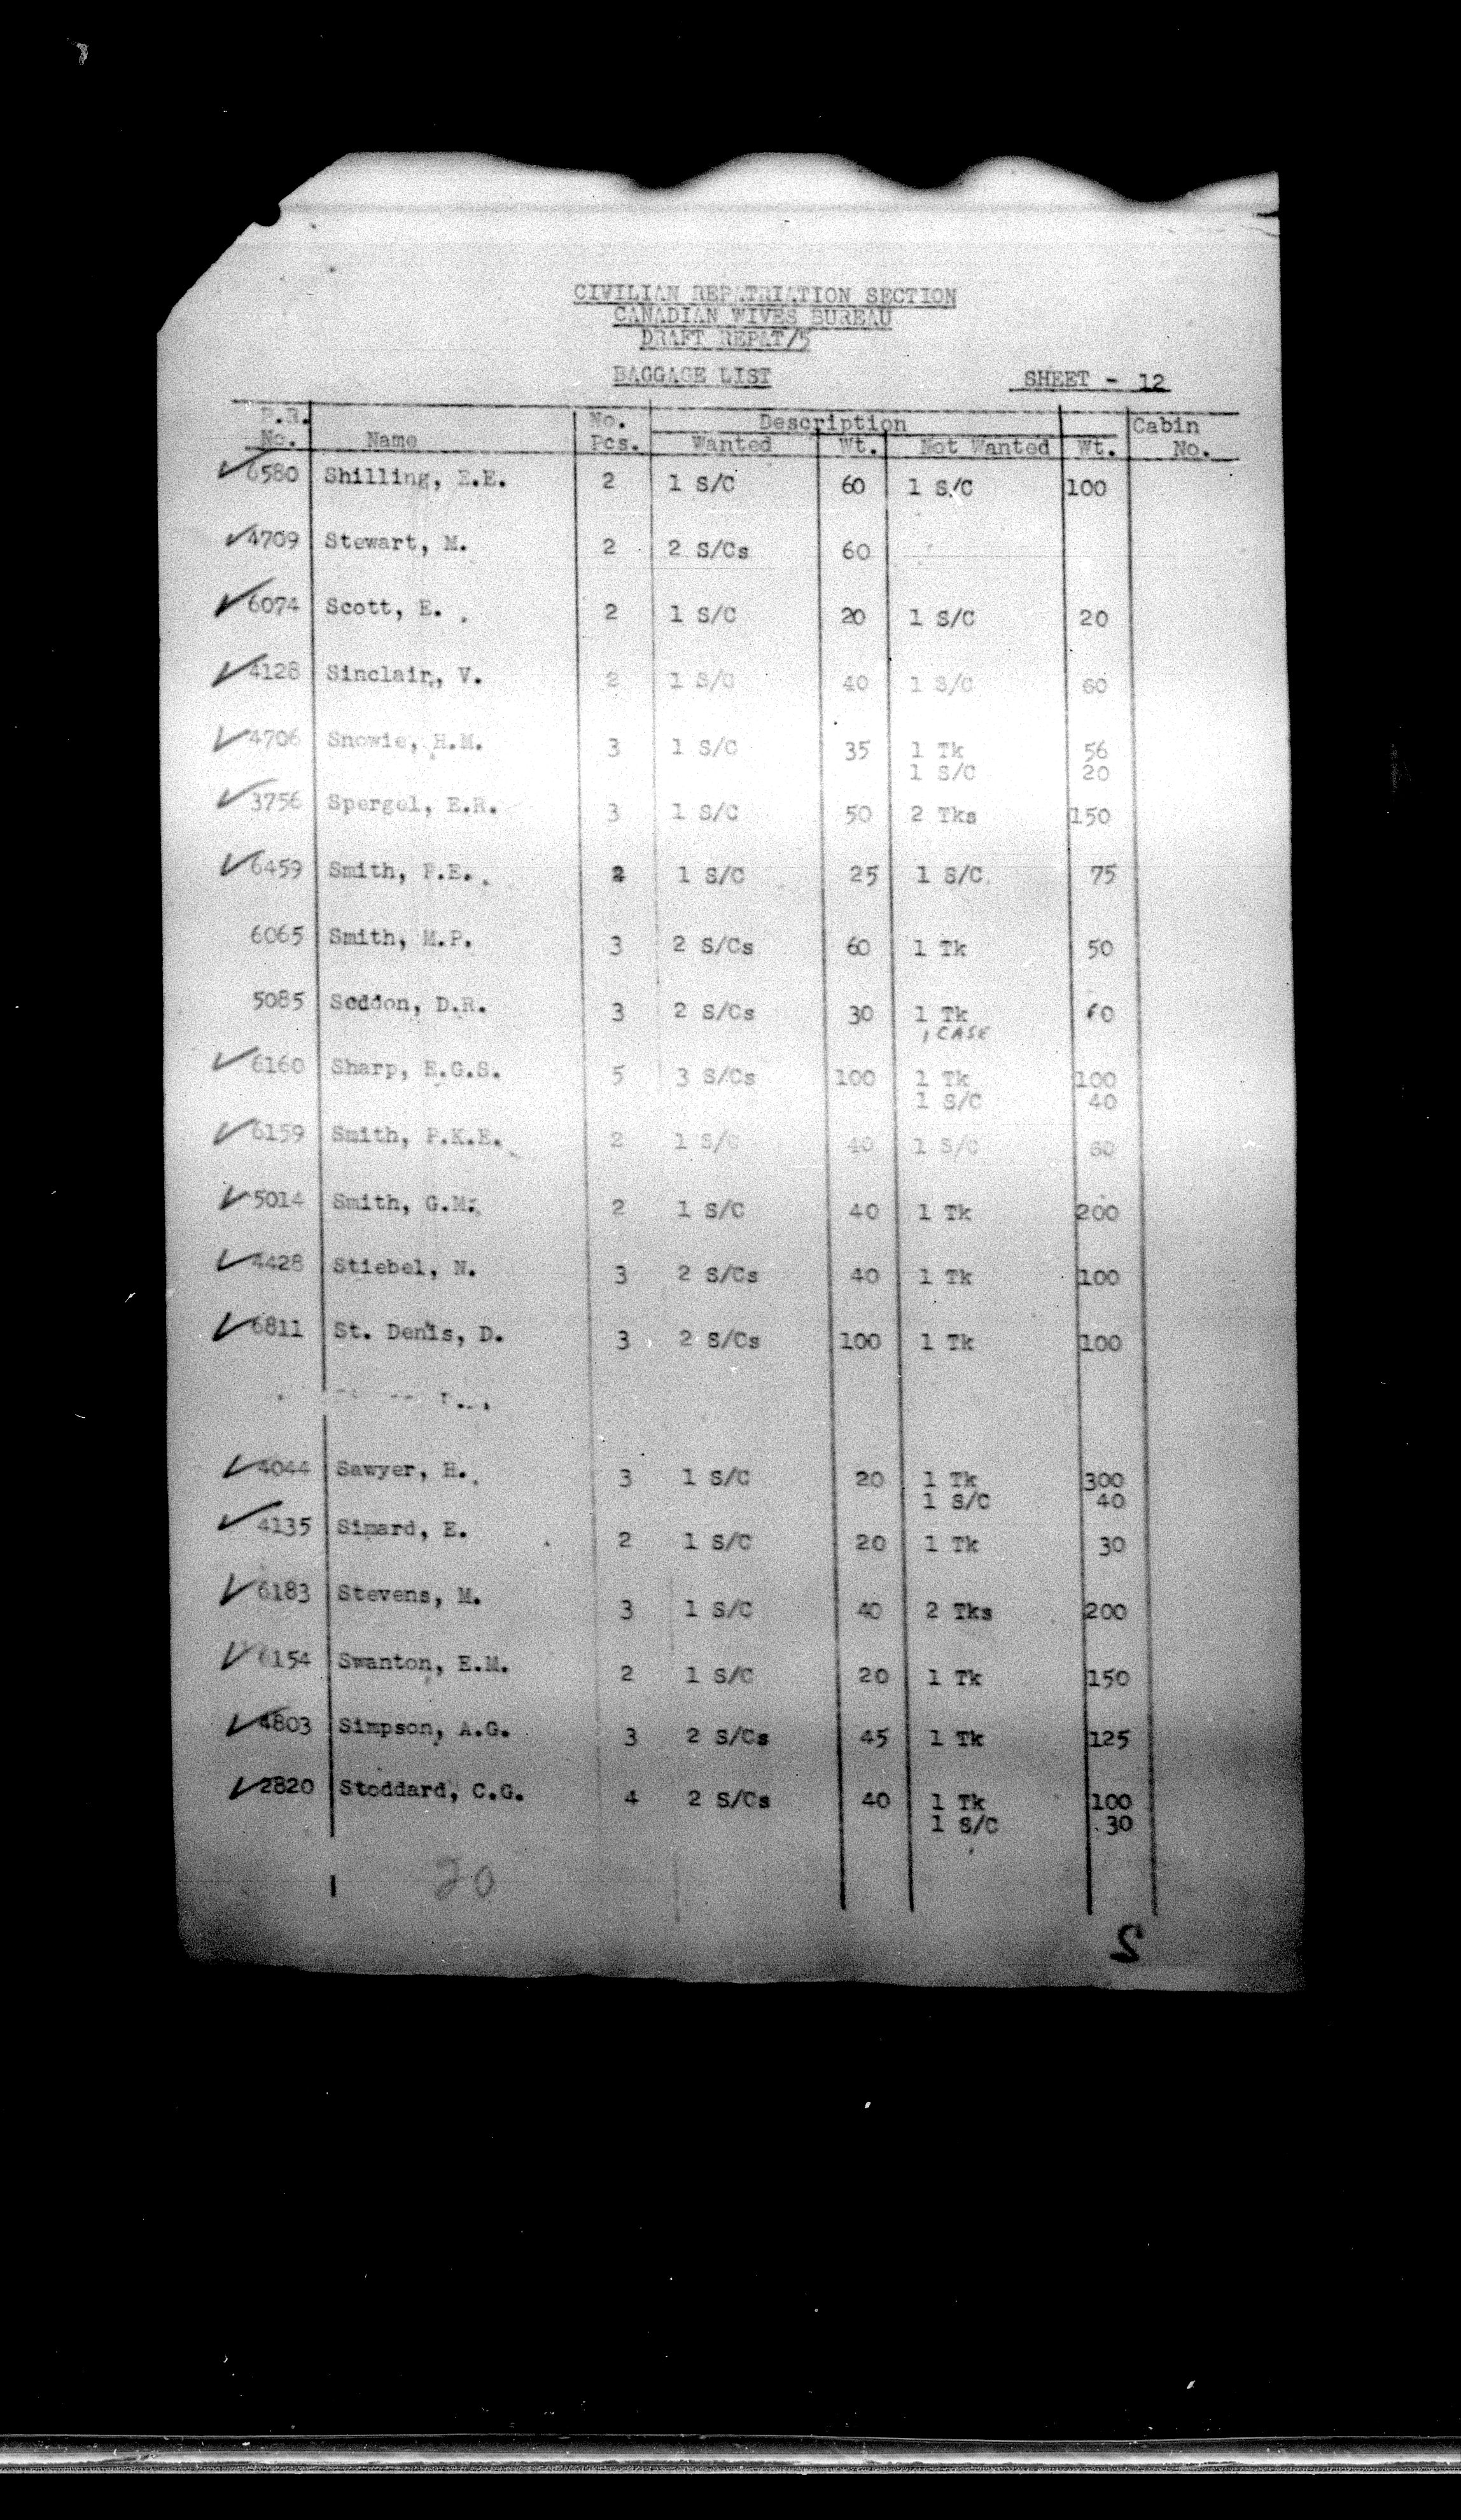 CIVILIAN REPATRIATION SECTION
CANADIAN WIVES BUREAU
DRAFT REPAT/5
BAGGAGE LIST SHEET - 12
No. Description Cabin
No. Name Pcs. Wanted Wt. Not Wanted Wt. No.
✓ 6580 Shilling, E.E. 2 1 S/C 60 1 S/C 100
✓ 4709 Stewart, M. 2 2 S/Cs 60
✓ 6074 Scott, E. 2 1 S/C 20 1 S/C 20
✓ 4128 Sinclair, V. 2 1 S/C 40 1 S/C 60
✓ 4706 Snowie, H.M. 3 1 S/C 35 1 Tk 56
1 S/C 20
✓ 3756 Spergel, E.R. 3 1 S/C 50 2 Tks 150
✓ 6459 Smith, F.E. 2 1 S/C 25 1 S/C 75
6065 Smith, M.P. 3 2 S/Cs 60 1 Tk 50
5085 Seddon, D.R. 3 2 S/Cs 30 1 Tk 60
1 CASE
✓ 6160 Sharp, E.G.S. 5 3 S/Cs 100 1 Tk 100
1 S/C 40
✓ 6159 Smith, P.K.E. 2 1 S/C 40 1 S/C 60
✓ 5014 Smith, G.M. 2 1 S/C 40 1 Tk 200
✓ 4428 Stiebel, N. 3 2 S/Cs 40 1 Tk 100
✓ 6811 St. Denis, D. 3 2 S/Cs 100 1 Tk 100
✓ 4044 Sawyer, H. 3 1 S/C 20 1 Tk 300
1 S/C 40
✓ 4135 Simard, E. 2 1 S/C 20 1 Tk 30
✓ 6183 Stevens, M. 3 1 S/C 40 2 Tks 200
✓ 6154 Swanton, E.M. 2 1 S/C 20 1 Tk 150
✓ 4803 Simpson, A.G. 3 2 S/Cs 45 1 Tk 125
✓ 2820 Stoddard, C.G. 4 2 S/Cs 40 1 Tk 100
1 S/C 30
20
2